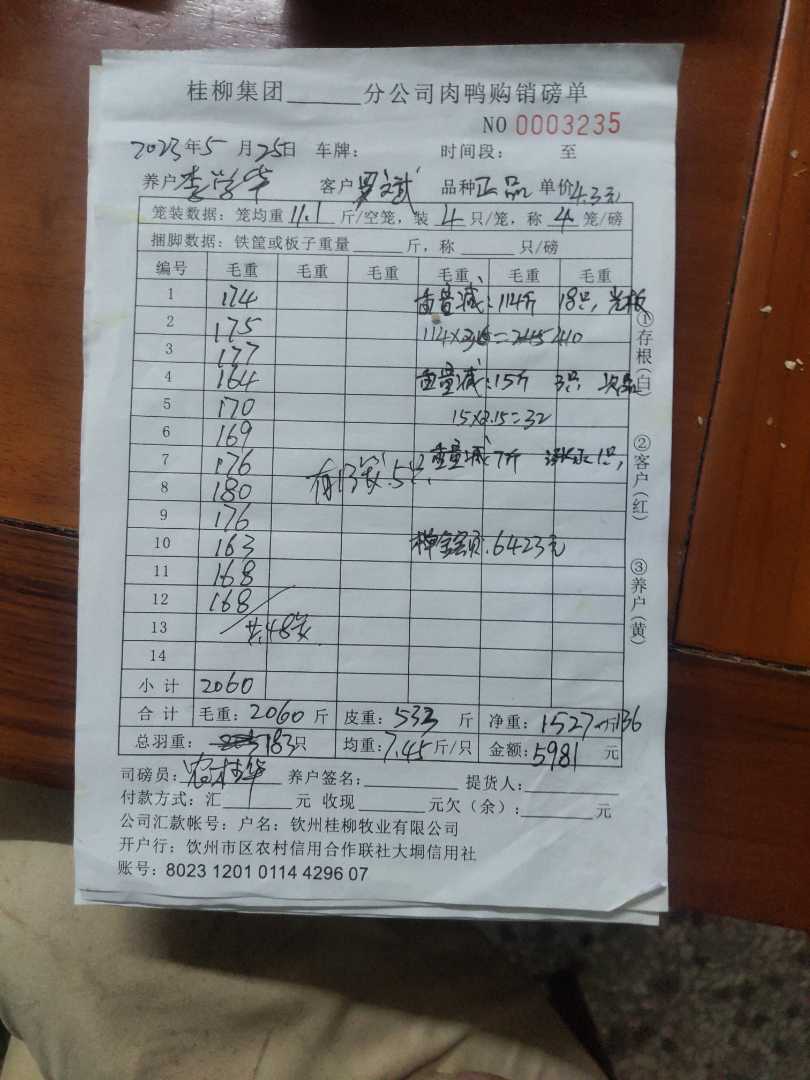 桂柳集团______分公司肉鸭购销磅单
NO 0003235
2023年5月25日 车牌: 时间段: 至
养户李学华 客户罗文斌 品种正品 单价4.3元
笼装数据: 笼均重11.1斤/空笼, 装4只/笼, 称4笼/磅
捆脚数据: 铁筐或板子重量______斤, 称______只/磅
编号 毛重 毛重 毛重 毛重 毛重 毛重
1 174 重量减: 114斤 18只, 光板
2 175 114×3.6= 410
3 177
4 164 重量减: 15斤 3只 次品
5 170 15×2.15=32
6 169
7 176 重量减: 7斤 1只,
8 180 有 5只,
9 176
10 163 金额: 6423元
11 168
12 168
13 共48笼
14
小计 2060
合计 毛重: 2060斤 皮重: 533斤 净重: 1527斤 136
总羽重: 183只 均重: 7.45斤/只 金额: 5981元
司磅员: 农 华 养户签名: 提货人:
付款方式: 汇______元 收现______元欠(余): ______元
公司汇款帐号: 户名: 钦州桂柳牧业有限公司
开户行: 钦州市区农村信用合作联社大垌信用社
账号: 8023 1201 0114 4296 07
①存根(白)
②客户(红)
③养户(黄)